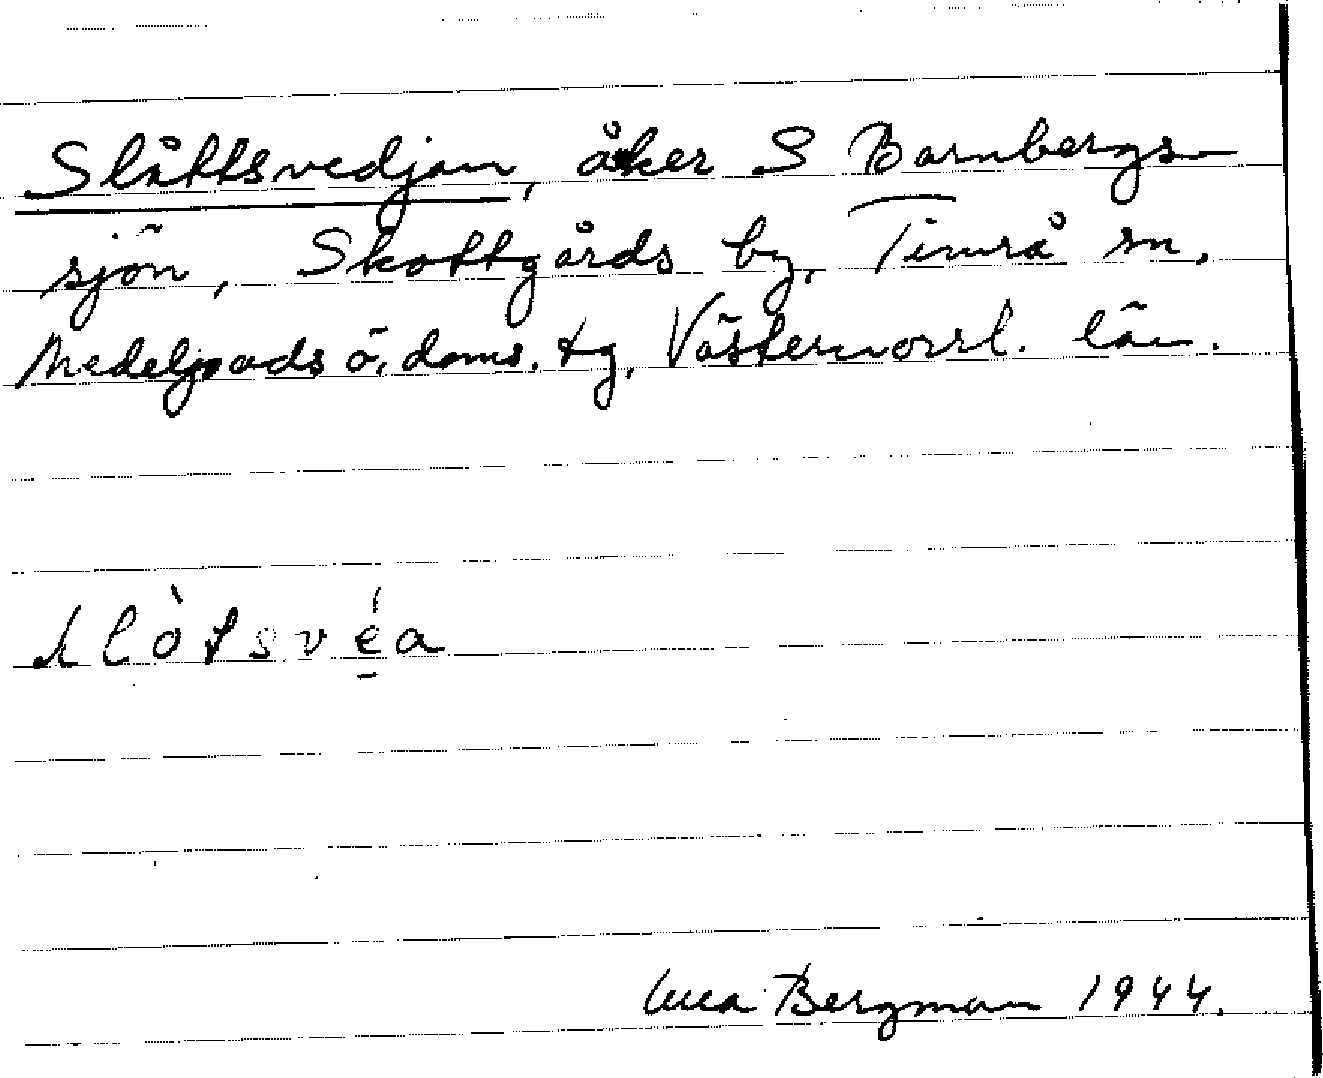 Slåttsvedjan, åker S Barnbergs-
sjön, Skottgårds by, Timrå sn,
Medelpads ö. doms. tg, Västernorrl. län.
slòtsvéa
Bergman 1944.